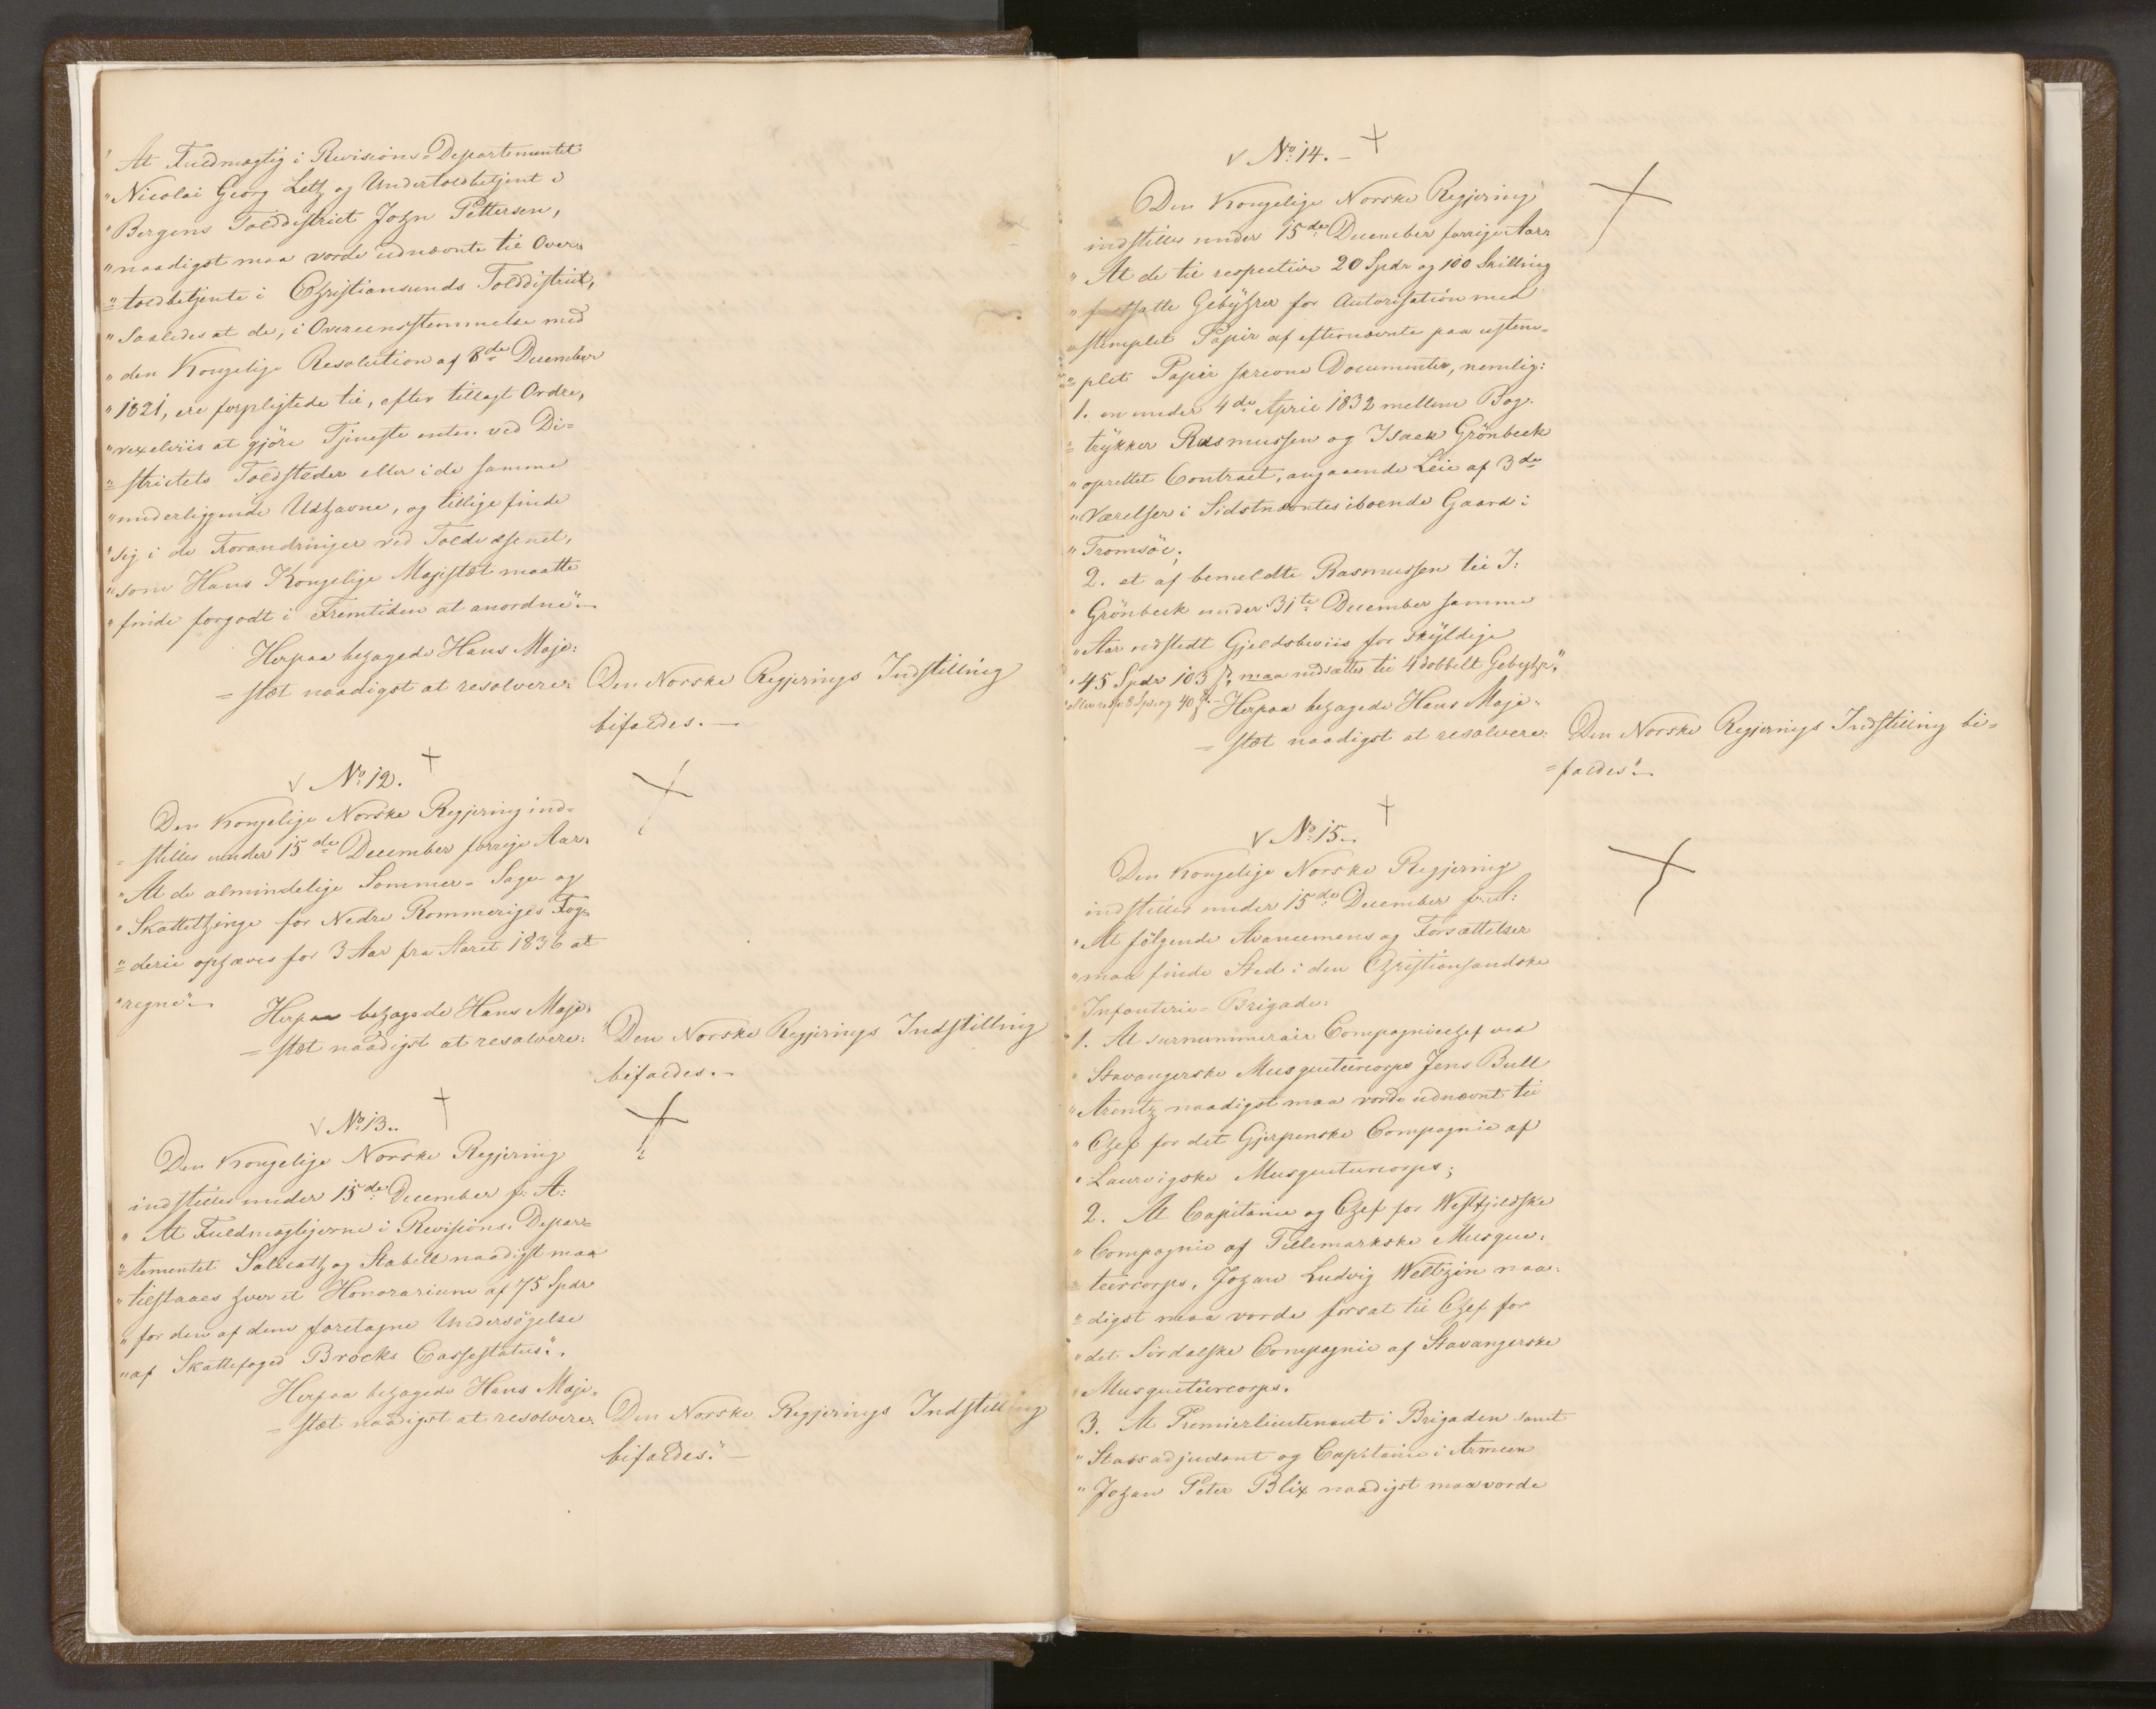 At Fuldmægtig i Revisions-Departementet
"Nicolai Georg Letz og Undertoldbetjent i
"Bergens Tolddistrict John Pettersen,
"naadigst maa vorde udnævnte til Over-
"=toldbetjente i Christiansunds Tolddistrict,
"Saaledes at de, i Overeensstemmelse med
"den Kongelige Resolution af 8de December
"1821, ere forpligtede til, efter tillagt Ordre,
"vexelviis at gjöre Tjeneste enten ved Di=
"=strictets Toldsteder eller i de samme
"underliggende Udhavne, og tillige finde
"sig i de Forandringer ved Toldvæsenet,
"som Hans Kongelige Majestæt maatte
"finde forgodt i Fremtiden at anordne".
Herpaa behagede Hans Maje=
=stæt naadigst at resolvere: Den Norske Regjerings Indstilling
bifaldes.
No 12.
Den Kongelige Norske Regjering ind=
=stiller under 15de December forrige Aar.
"At de almindelige Sommer- Sage- og
"Skattethinge for Nedre Rommeriges Fog=
"=derie ophæves for 3 Aar fra Aaret 1836 at
"regne".
Herpaa behagede Hans Maje=
=stæt naadigst at resolvere: "Den Norske Regjerings Indstilling
bifaldes.
No 13.
Den Kongelige Norske Regjering
indstiller under 15de December f: A:
"At Fuldmægtigerne i Revisions-Depar=
"=tementet Salicath og Stabell naadigst maa
"tilstaaes hver et Honorarium af 75 Spdr
"for den af dem foretagne Undersögelse
"af Skattefoged Brocks Cassestatus".
Herpaa behagede Hans Maje=
=stæt naadigst at resolvere: Den Norske Regjerings Indstilling
bifaldes."
No 14.
Den Kongelige Norske Regjering
indstiller under 15de December forrige Aar:
"At de til respective 20 Spdr og 100 Skilling
"fastsatte Gebyhrer for Autorisation med
"stemplet Papir af efternævnte paa ustem=
"=plet Papir skrevne Documenter, nemlig:
1. en under 4de April 1832 mellem Bog=
"=trykker Rasmussen og Isaek Grönbeck
"oprettet Contract, angaaende Leie af 3de
"Værelser i Sidstnævntes iboende Gaard i
"Tromsöe;
2. et af bemeldte Rasmussen til I:
"Grönbeck under 31te December samme
"Aar udstedt Gjeldsbeviis for skyldige
"45 Spdr 103 ß, maa nedsættes til 4 dobbelt Gebyhr,"
"eller resp: 8 Spd og 40 ß.-
Herpaa behagede Hans Maje=
=stæt naadigst at resolvere: Den Norske Regjerings Indstilling bi=
=faldes".
No 15.
Den Kongelige Norske Regjering
indstiller under 15de December f: A:
"At fölgende Avancemens og Forsættelser
"maa finde Sted i den Christiansandske
Infanterie-Brigade:
1. At surnummerair Compagniechef ved
"Stavangerske Musqueteercorps Jens Bull
"Arentz naadigst maa vorde udnævnt til
"Chef for det Gjerpenske Compagnie af
"Laurvigske Musqueteercorps;
2. At Capitaine og Chef for Westfjeldske
"Compagnie af Tellemarkske Musque=
"=teercorps, Johan Ludvig Weltzin naa=
"=digst maa vorde forsat til Chef for
"det Sirdalske Compagnie af Stavangerske
"Musqueteercorps.
3. At Premierlieutenant i Brigaden samt
"Stabsadjudant og Capitaine i Armeen
"Johan Peter Blix naadigst maa vorde